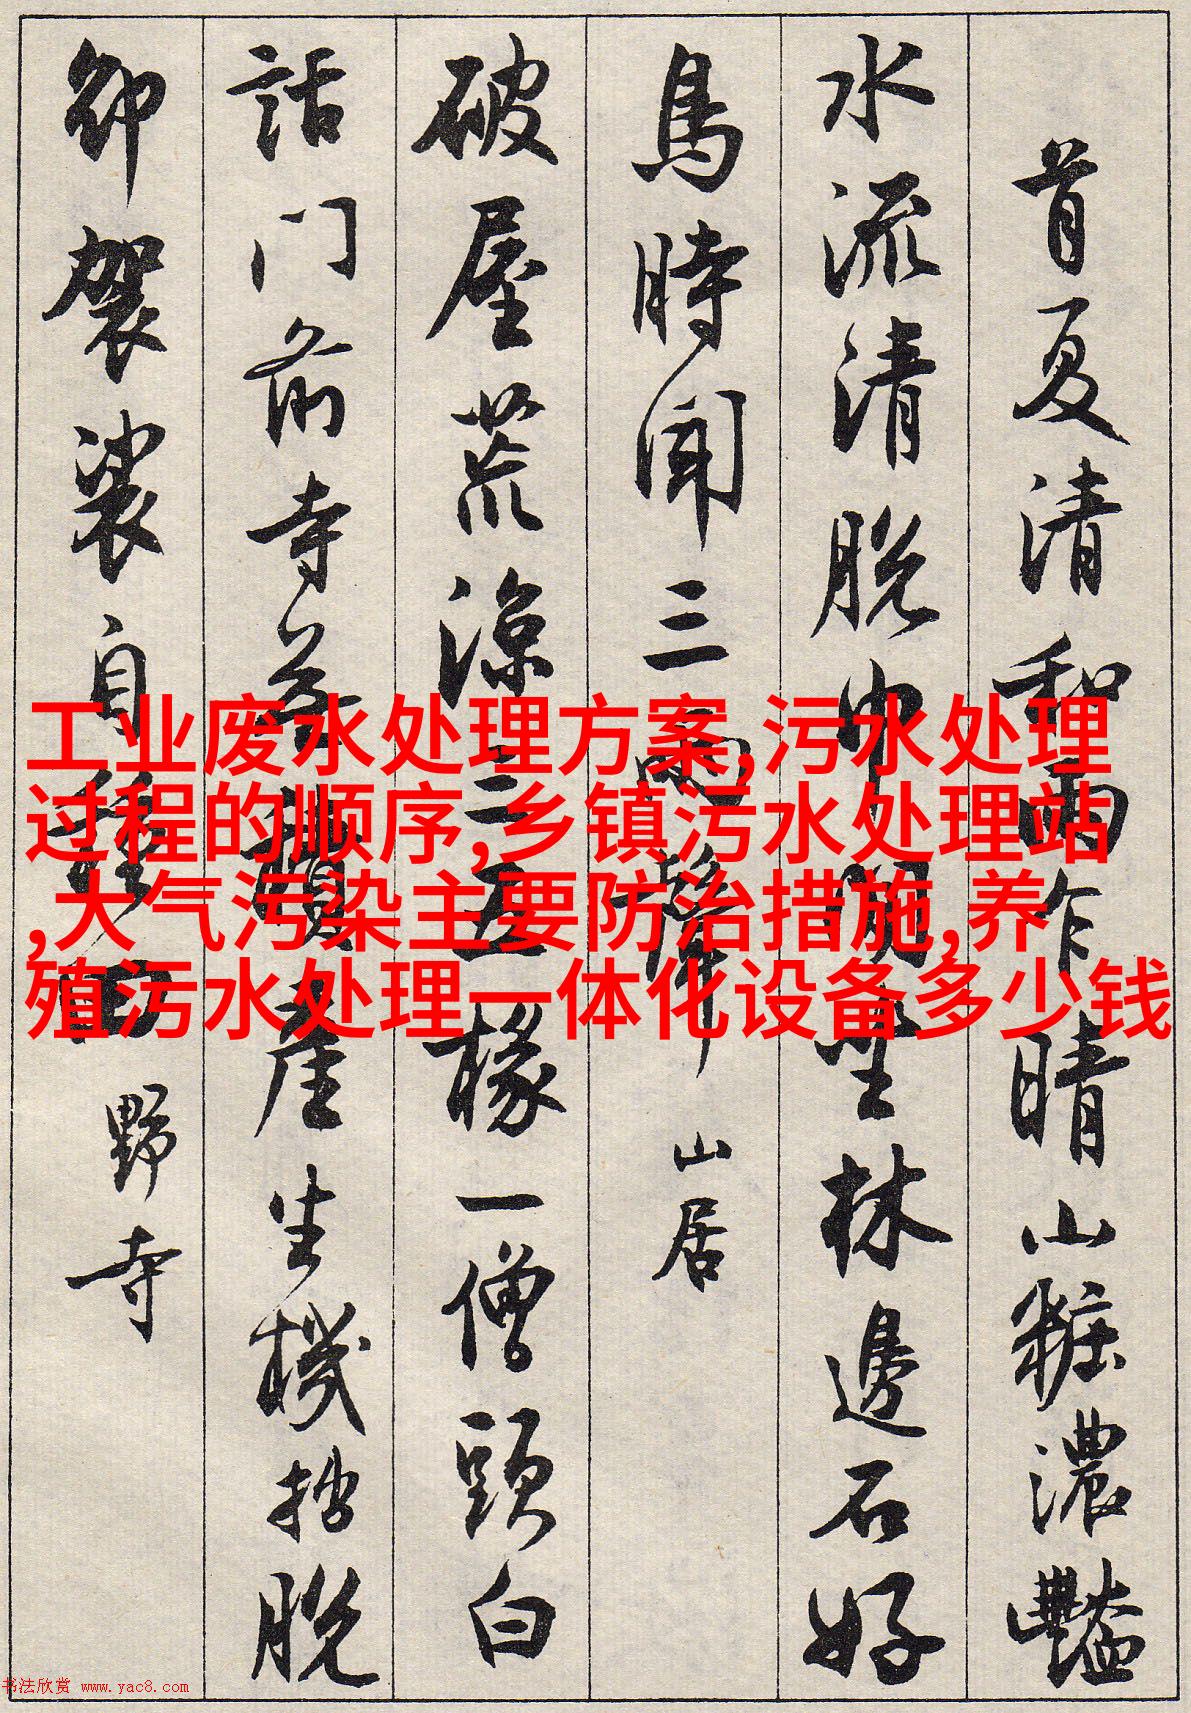 首夏清和雨乍晴山粧濃豔
水流清脱巾坐林邊石好
鳥時聞三兩聲 山居
破屋荒涼三五椽一僧頭白
話门前寺產生機拙脱
卻袈裟自種田 野寺
工业废水处理方案,污水处理
过程的顺序,乡镇污水处理站
,大气污染主要防治措施,养
殖污水处理一体化设备多少钱
书法欣赏 www.yac8.com